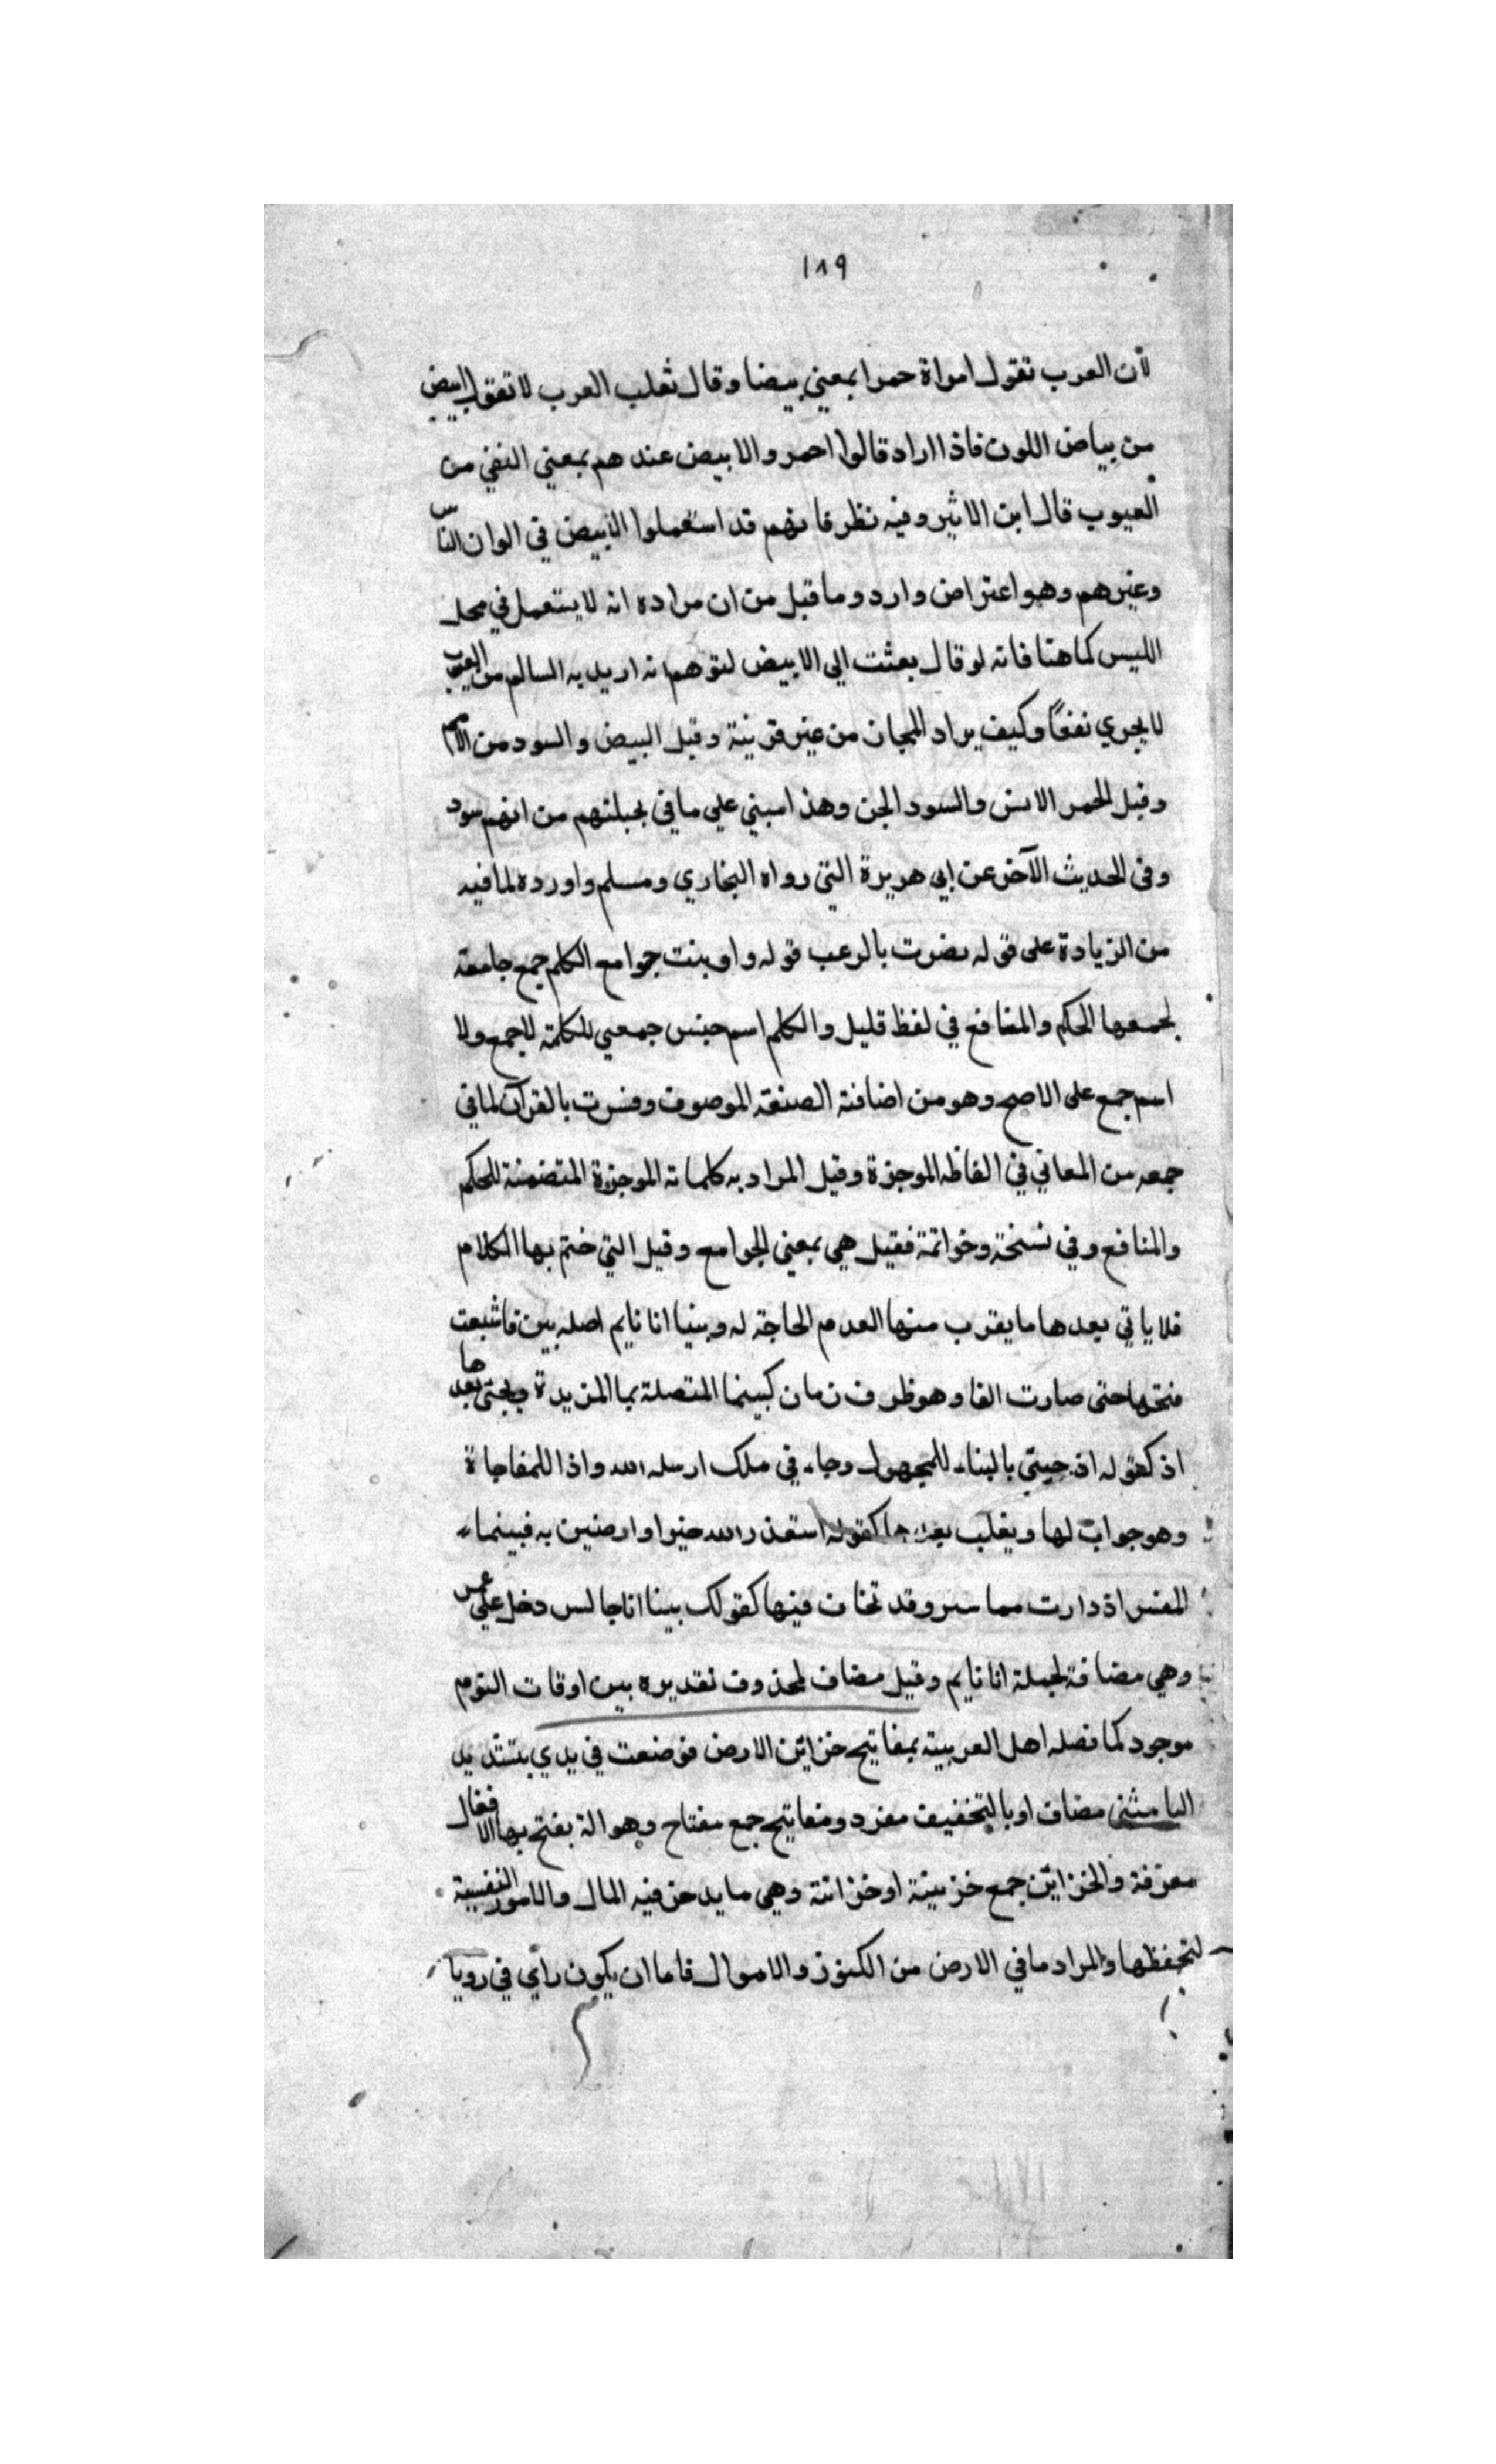 ١٨٩
لأن العرب تقول امراة حمرا بمعني بيضا وقال ثعلب العرب لا تقول ابيض
من بياض اللون فاذا اراد قالوا احمر والابيض عندهم بمعني النقي من
العيوب قال ابن الاثير وفيه نظر فانهم قد استعملوا الابيض في الوان الناس
وغيرهم وهو اعتراض وارد وما قيل من ان مراده انه لا يستعمل في محل
اللبس كما هنا فانه لو قال بعثت الي الابيض لتوهم انه اريد به السالم من العيوب
لا يجري نفعًا وكيف يراد المجاز من غير قرينة وقيل البيض والسود من الامم
وقيل الحمر الانس والسود الجن وهذا مبني علي ما في بجبلتهم من انهم سود
وفي الحديث الآخر عن ابي هريرة التي رواه البخاري ومسلم واورده لما فيه
من الزيادة على قوله نصرت بالرعب قوله واوتيت جوامع الكلم جمع جامعة
لجمعها الحكم والمنافع في لفظ قليل والكلم اسم جنس جمعي للكلمة لا جمع ولا
اسم جمع على الاصح وهو من اضافة الصفة الموصوف وفسرت بالقرآن لما في
جمعه من المعاني في الفاظه الموجزة وقيل المراد به كلماته الموجزة المتضمنة للحكم
والمنافع وفي نسخة وخواتمة فقيل هي بمعني الجوامع وقيل التي ختم بها الكلام
فلا ياتي بعدها ما يقرب منها العدم الحاجة له وبينا انا نايم اصله بين فاشبعت
فتحها حتى صارت الفا وهو ظرف زمان كبينما المتصلة بما المزيدة ويجئ بعدها
اذ كقوله اذ جيتي بالبناء للمجهول وجاء في ملك ارسله الله واذا للمفاجاة
وهو جواب لها ويغلب بعدها كقوله استقدر الله خيرا وارضين به فبينما
العسر اذ دارت مياسر وقد تحذف فيها كقولك بينا انا جالس دخل علي عمر
وهي مضافة لجملة انا نايم وقيل مضاف لمحذوف تقديره بين اوقات النوم
موجود كما فصله اهل العربية بمفاتيح خزائن الارض فوضعت في يدي بتشديد
اليا مثنى مضاف او بالتخفيف مفرد ومفاتيح جمع مفتاح وهو الة يفتح بها الاقفال
معرفة والخزائن جمع خزينة او خزانة وهي ما يدخر فيه المال والامور النفيسة
لتحفظها والمراد ما في الارض من الكنوز والاموال فاما ان يكون رأي في رويا